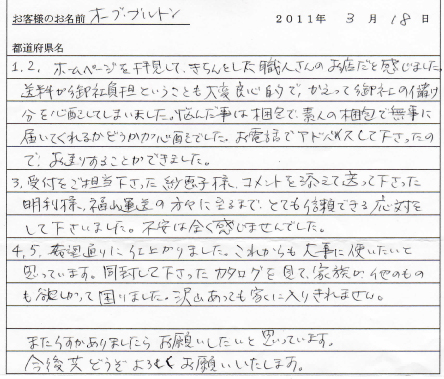 お客様のお名前 オーブ・ブルトン 2011年 3月18日
都道府県名
1.2. ホームページを拝見して、きちんとした職人さんのお店だと感じました。
送料が御社負担ということも大変良心的で、かえって御社の儲け
分を心配してしまいました。悩んだ事は梱包で、素人の梱包で無事に
届いてくれるかどうかが心配でした。お電話でアドバイスして下さったの
で、お送りすることができました。
3.受付をご担当下さった紗恵子様、コメントを添えて送って下さった
明利様、福山運送の方々に至るまで、とても信頼できる応対を
して下さいました。不安は全く感じませんでした。
4.5. 希望通りに仕上がりました。これからも大事に使いたいと
思っています。同封して下さったカタログを見て、家族が他のもの
も欲しがって困りました。沢山あっても家に入りきれません。
またうすかありましたらお願いしたいと思っています。
今後共どうぞよろしくお願いいたします。